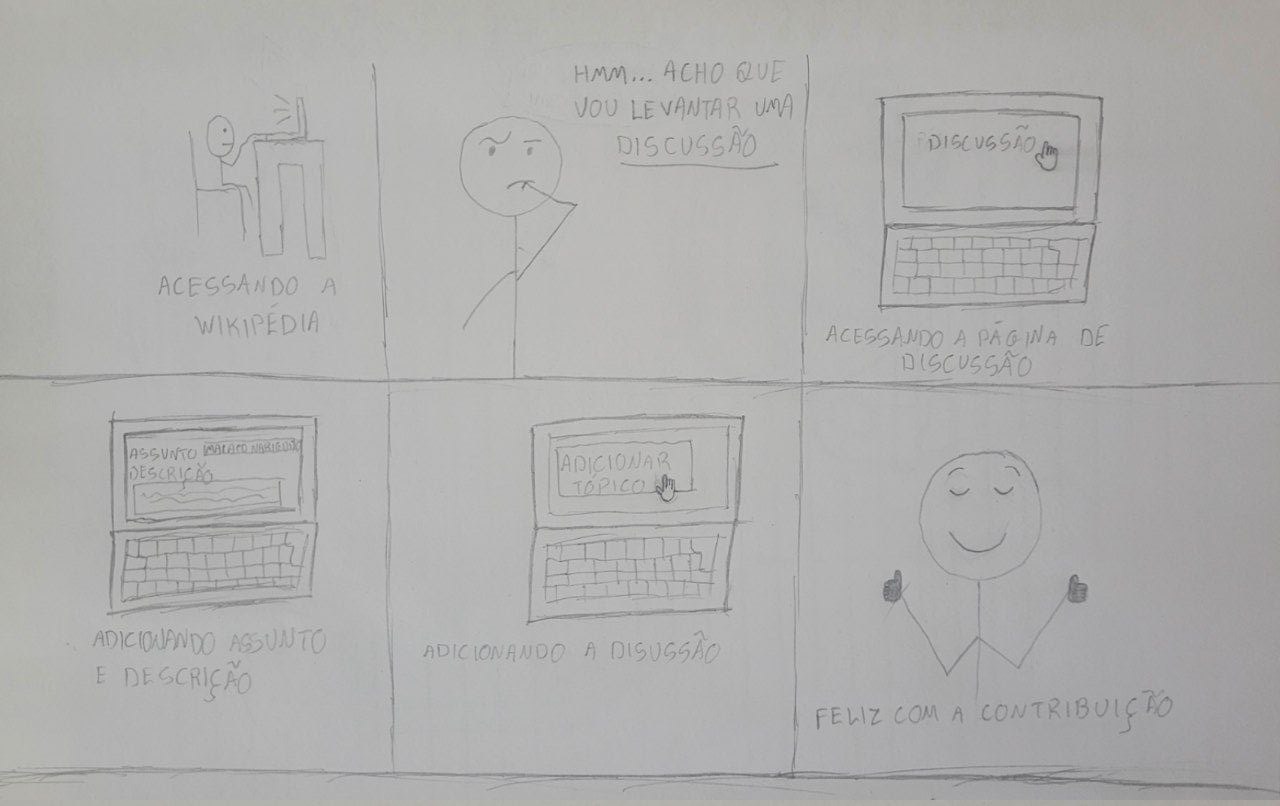 ACESSANDO A
WIKIPÉDIA
HMM... ACHO QUE
VOU LEVANTAR UMA
DISCUSSÃO
DISCUSSÃO
ACESSANDO A PÁGINA DE
DISCUSSÃO
ASSUNTO MACACO NARIGUDO
DESCRIÇÃO
ADICIONANDO ASSUNTO
E DESCRIÇÃO
ADICIONAR
TÓPICO
ADICIONANDO A DISUSSÃO
FELIZ COM A CONTRIBUIÇÃO